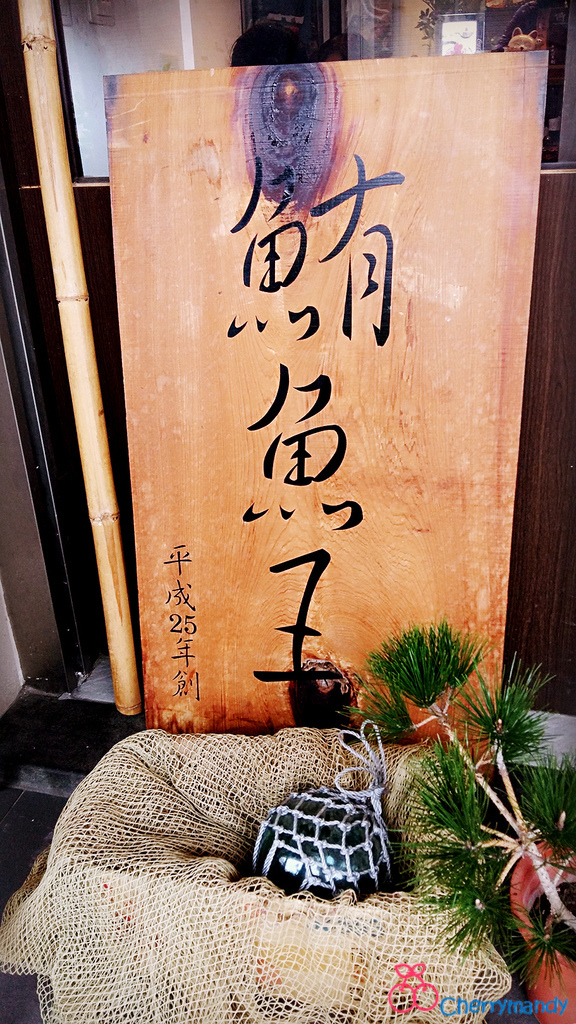 鮪魚王
平成25年創
Cherrymandy